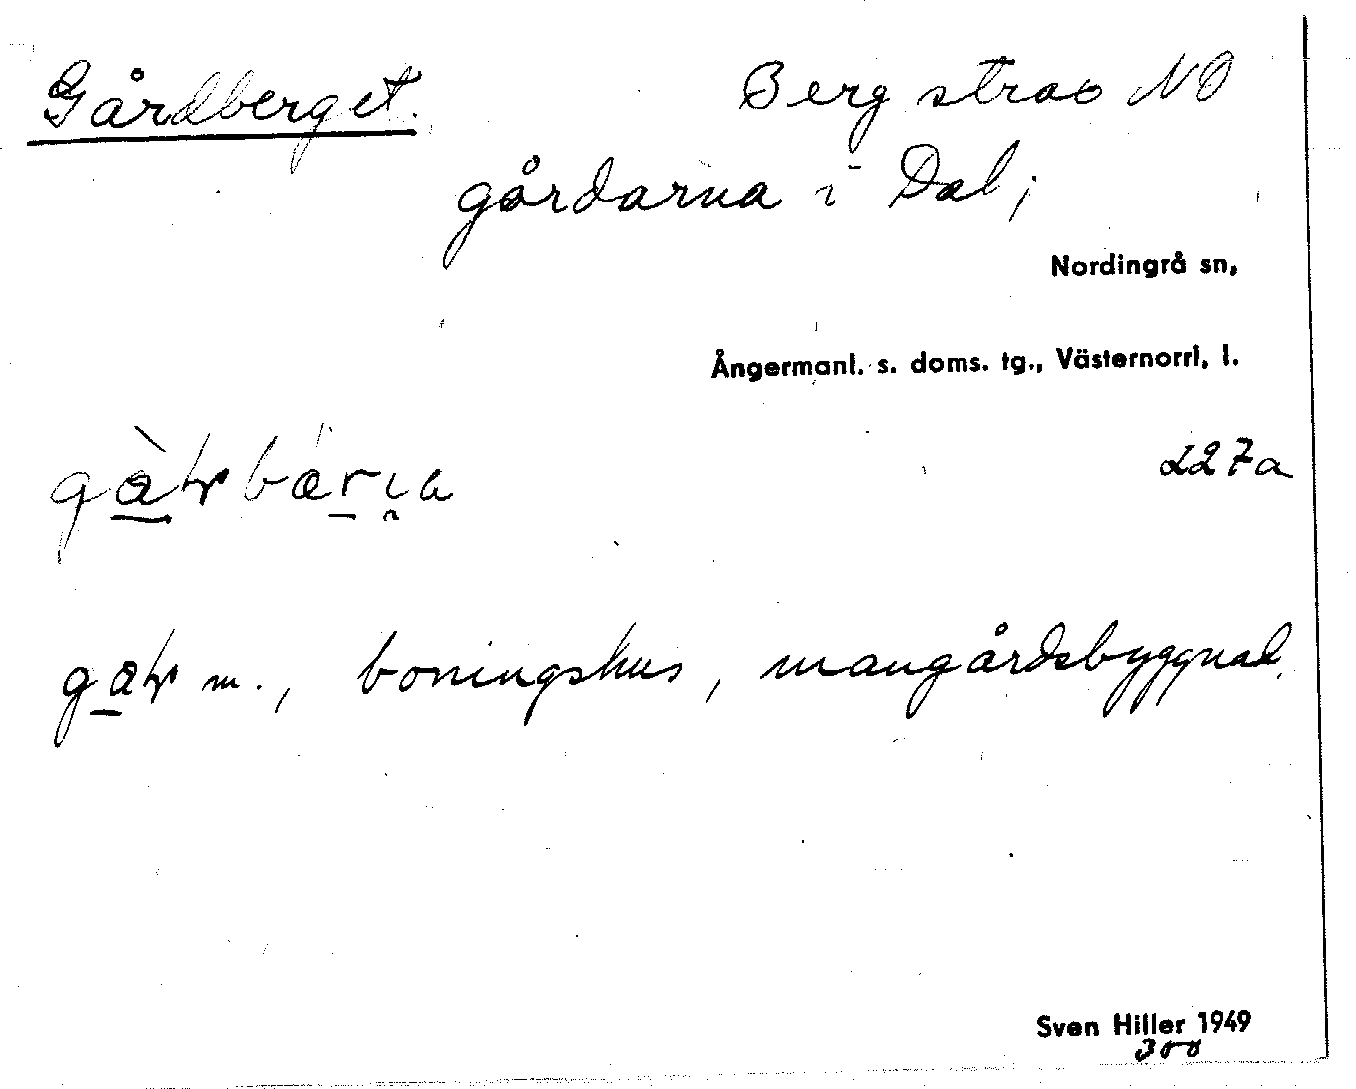 Gårdberget. Berg strax NO
gårdarna i Dal;
Nordingrå sn,
Ångermanl. s. doms. tg., Västernorrl. l.
227a
m., boningshus, mangårdsbyggnad.
Sven Hiller 1949
300